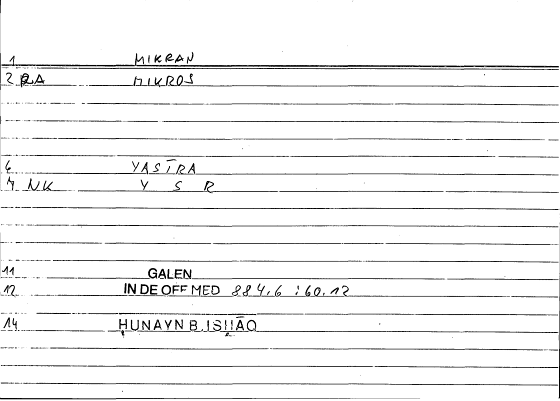 1 MIKRAN
2 RA MIKROS
6 YASĪRA
7 NK Y S R
11 GALEN
12 IN DE OFF MED 884.6 : 60.12
14 ḤUNAYN B. ISḤĀQ